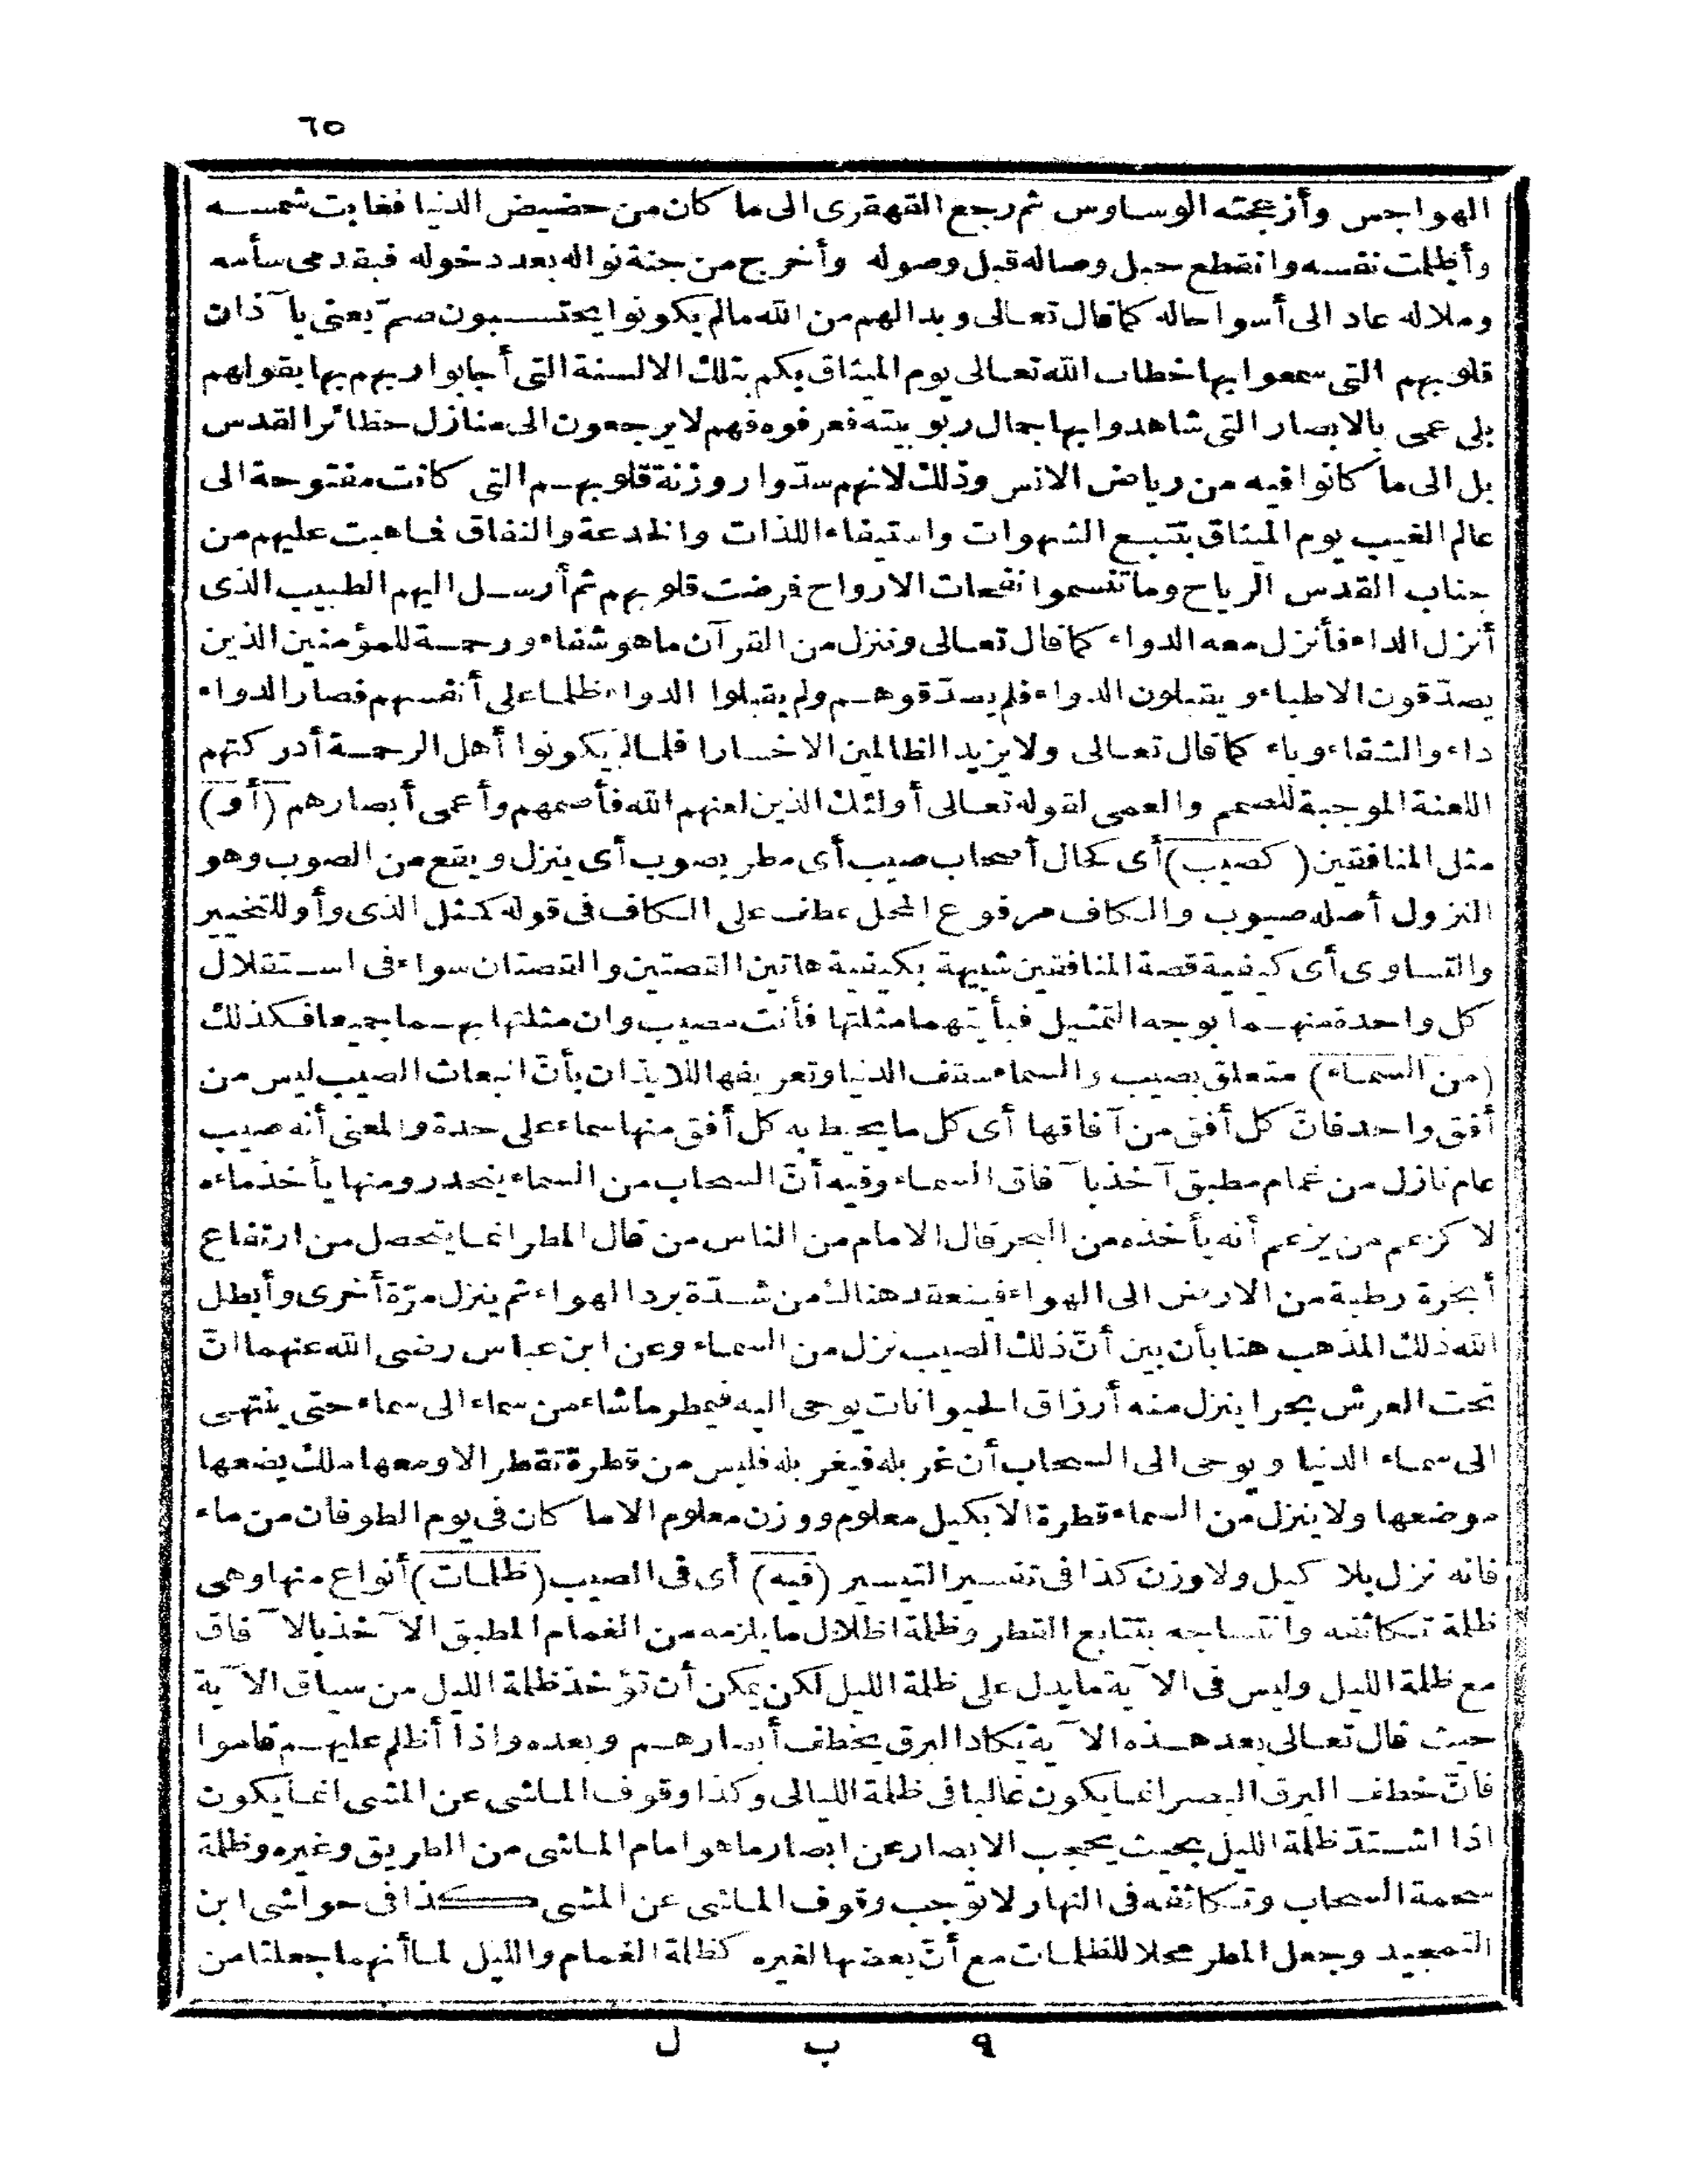 ٦٥
الهواجس وأزعجته الوساوس ثم رجع القهقرى الى ما كان من حضيض الدنيا فغابت شمسه
وأظلمت نفسه وانقطع حبل وصاله قبل وصوله وأخرج من جنة نواله بعد دخوله فبقدمى سأمه
وملاله عاد الى أسوا حاله كما قال تعالى وبدا لهم من الله مالم يكونوا يحتسبون صم يعنى با ّذان
قلوبهم التى سمعوا بها خطاب الله تعالى يوم الميثاق بكم بتلك الالسنة التى أجابوا ربهم بها بقولهم
بلى عمى بالابصار التى شاهدوا بها جمال ربوبيته فعرفوه فهم لا يرجعون الى منازل حظائر القدس
بل الى ما كانوا فيه من رياض الانس وذلك لانهم سدّوا روزنة قلوبهم التى كانت مفتوحة الى
عالم الغيب يوم الميثاق بتتبع الشهوات واستيفاء اللذات والخدعة والنفاق فما هبت عليهم من
جناب القدس الرياح وما تنسموا نفحات الارواح فرضت قلوبهم ثم أرسل اليهم الطبيب الذى
أنزل الداء فأنزل معه الدواء كما قال تعالى وننزل من القرآن ما هو شفاء ورحمة للمؤمنين الذين
يصدّقون الاطباء ويقبلون الدواء فلم يصدّقوهم ولم يقبلوا الدواء ظلما على أنفسهم فصار الدواء
داء والشفاء وباء كما قال تعالى ولا يزيد الظالمين الا خسارا فلما لم يكونوا أهل الرحمة أدركتهم
اللعنة الموجبة للصمم والعمى لقوله تعالى أولئك الذين لعنهم الله فأصمهم وأعمى أبصارهم (أو)
مثل المنافقين (كصيب) أى كحال أصحاب صيب أى مطر يصوب أى ينزل ويقع من الصوب وهو
النزول أصله صيوب والكاف مرفوع المحل عطف على الكاف فى قوله كمثل الذى وأو للتخيير
والتساوى أى كيفية قصة المنافقين شبيهة بكيفية هاتين القصتين والقصتان سواء فى استقلال
كل واحدة منهما بوجه التمثيل فبأيتهما مثلتها فأنت مصيب وان مثلتها بهما جميعا فكذلك
(من السماء) متعلق بصيب والسماء سقف الدنيا وتعريفها للايذان بأنّ انبعاث الصيب ليس من
أفق واحد فانّ كل أفق من آفاقها أى كل ما يحيط به كل أفق منها سماء على حدة والمعنى أنه صيب
عام نازل من غمام مطبق آخذ با ّفاق السماء وفيه أنّ السحاب من السماء ينحدر ومنها يأخذ ماءه
لا كزعم من يزعم أنه يأخذه من البحر قال الامام من الناس من قال المطر انما يتحصل من ارتفاع
أبخرة رطبة من الارض الى الهواء فينعقد هناك من شدّة برد الهواء ثم ينزل مرّة أخرى وأبطل
الله ذلك المذهب هنا بأن بين أنّ ذلك الصيب نزل من السماء وعن ابن عباس رضى الله عنهما انّ
تحت العرش بحرا ينزل منه أرزاق الحيوانات يوحى اليه فيمطر ما شاء من سماء الى سماء حتى ينتهى
الى سماء الدنيا ويوحى الى السحاب أن غربله فيغربله فليس من قطرة تقطر الا ومعها ملك يضعها
موضعها ولا ينزل من السماء قطرة الا بكيل معلوم ووزن معلوم الا ما كان فى يوم الطوفان من ماء
فانه نزل بلا كيل ولا وزن كذا فى تفسير التيسير (فيه) أى فى الصيب (ظلمات) أنواع منها وهى
ظلة تكاثفه وانتساجه بتتابع القطر وظلمة اظلال ما يلزمه من الغمام المطبق الا ّخذ بالا ّفاق
مع ظلمة الليل وليس فى الا ّية ما يدل على ظلمة الليل لكن يمكن أن تؤخذ ظلمة الليل من سياق الا ّية
حيث قال تعالى بعد هذه الا ّية يكاد البرق يخطف أبصارهم وبعده واذا أظلم عليهم قاموا
فانّ خطف البرق البصر انما يكون غالبا فى ظلمة الليالى وكذا وقوف الماشى عن المشى انما يكون
اذا اشتدّ ظلمة الليل بحيث يحجب الابصار عن ابصار ما هو امام الماشى من الطريق وغيره وظلمة
سحمة السحاب وتكاثفه فى النهار لا توجب وقوف الماشى عن المشى كذا فى حواشى ابن
التمجيد وجعل المطر محلا للظلمات مع أنّ بعضها لغيره كظلمة الغمام والليل لما أنهما جعلتا من
٩ ب ل